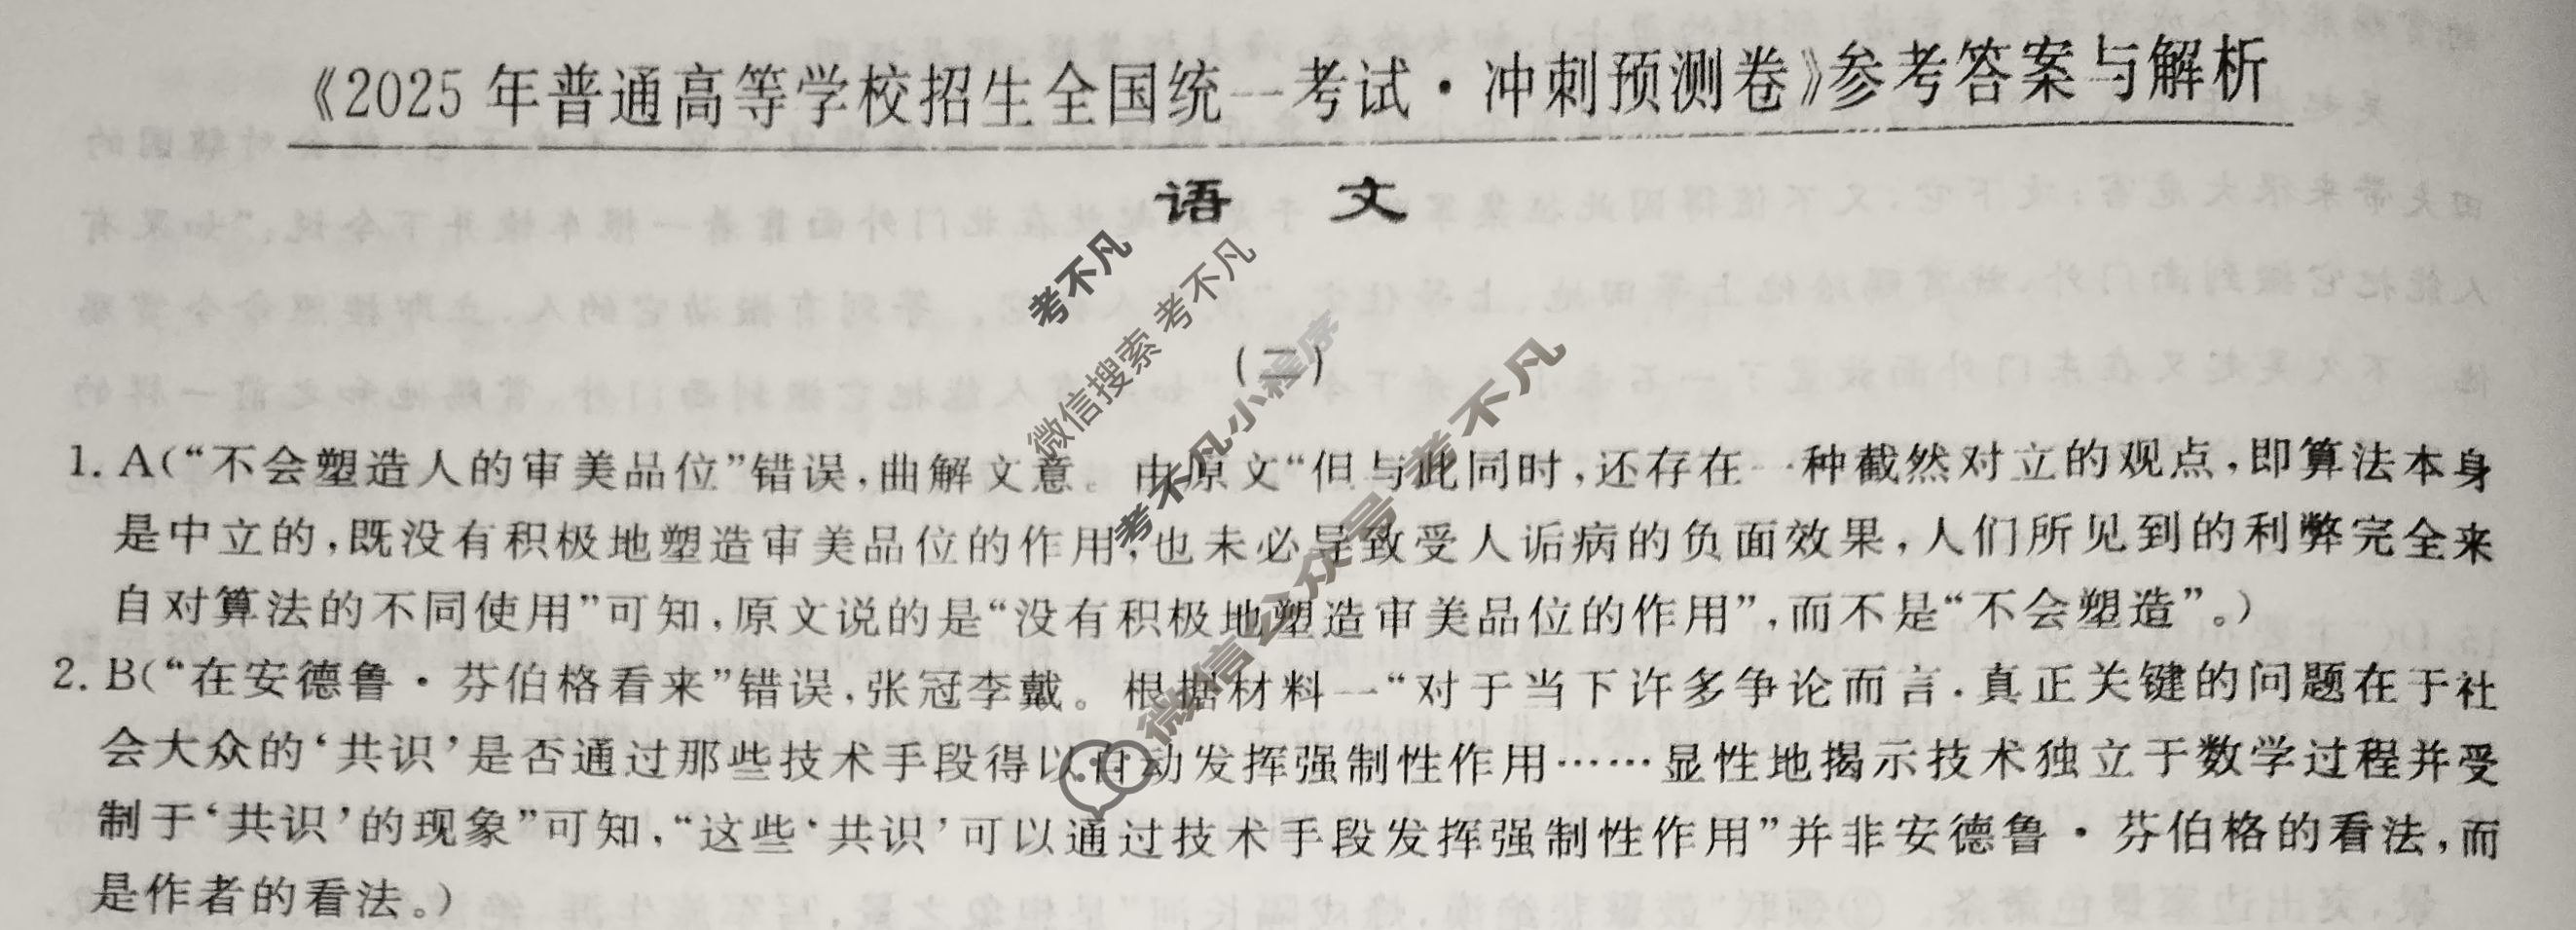 《2025年普通高等学校招生全国统一考试·冲刺预测卷》参考答案与解析
语 文
(二)
1. A(“不会塑造人的审美品位”错误,曲解文意。由原文“但与此同时,还存在一种截然对立的观点,即算法本身
是中立的,既没有积极地塑造审美品位的作用,也未必导致受人诟病的负面效果,人们所见到的利弊完全来
自对算法的不同使用”可知,原文说的是“没有积极地塑造审美品位的作用”,而不是“不会塑造”。)
2. B(“在安德鲁·芬伯格看来”错误,张冠李戴。根据材料一“对于当下许多争论而言,真正关键的问题在于社
会大众的‘共识’是否通过那些技术手段得以自动发挥强制性作用……显性地揭示技术独立于数学过程并受
制于‘共识’的现象”可知,“这些‘共识’可以通过技术手段发挥强制性作用”并非安德鲁·芬伯格的看法,而
是作者的看法。)
考不凡
微信搜索 考不凡
考不凡小程序
微信公众号 考不凡